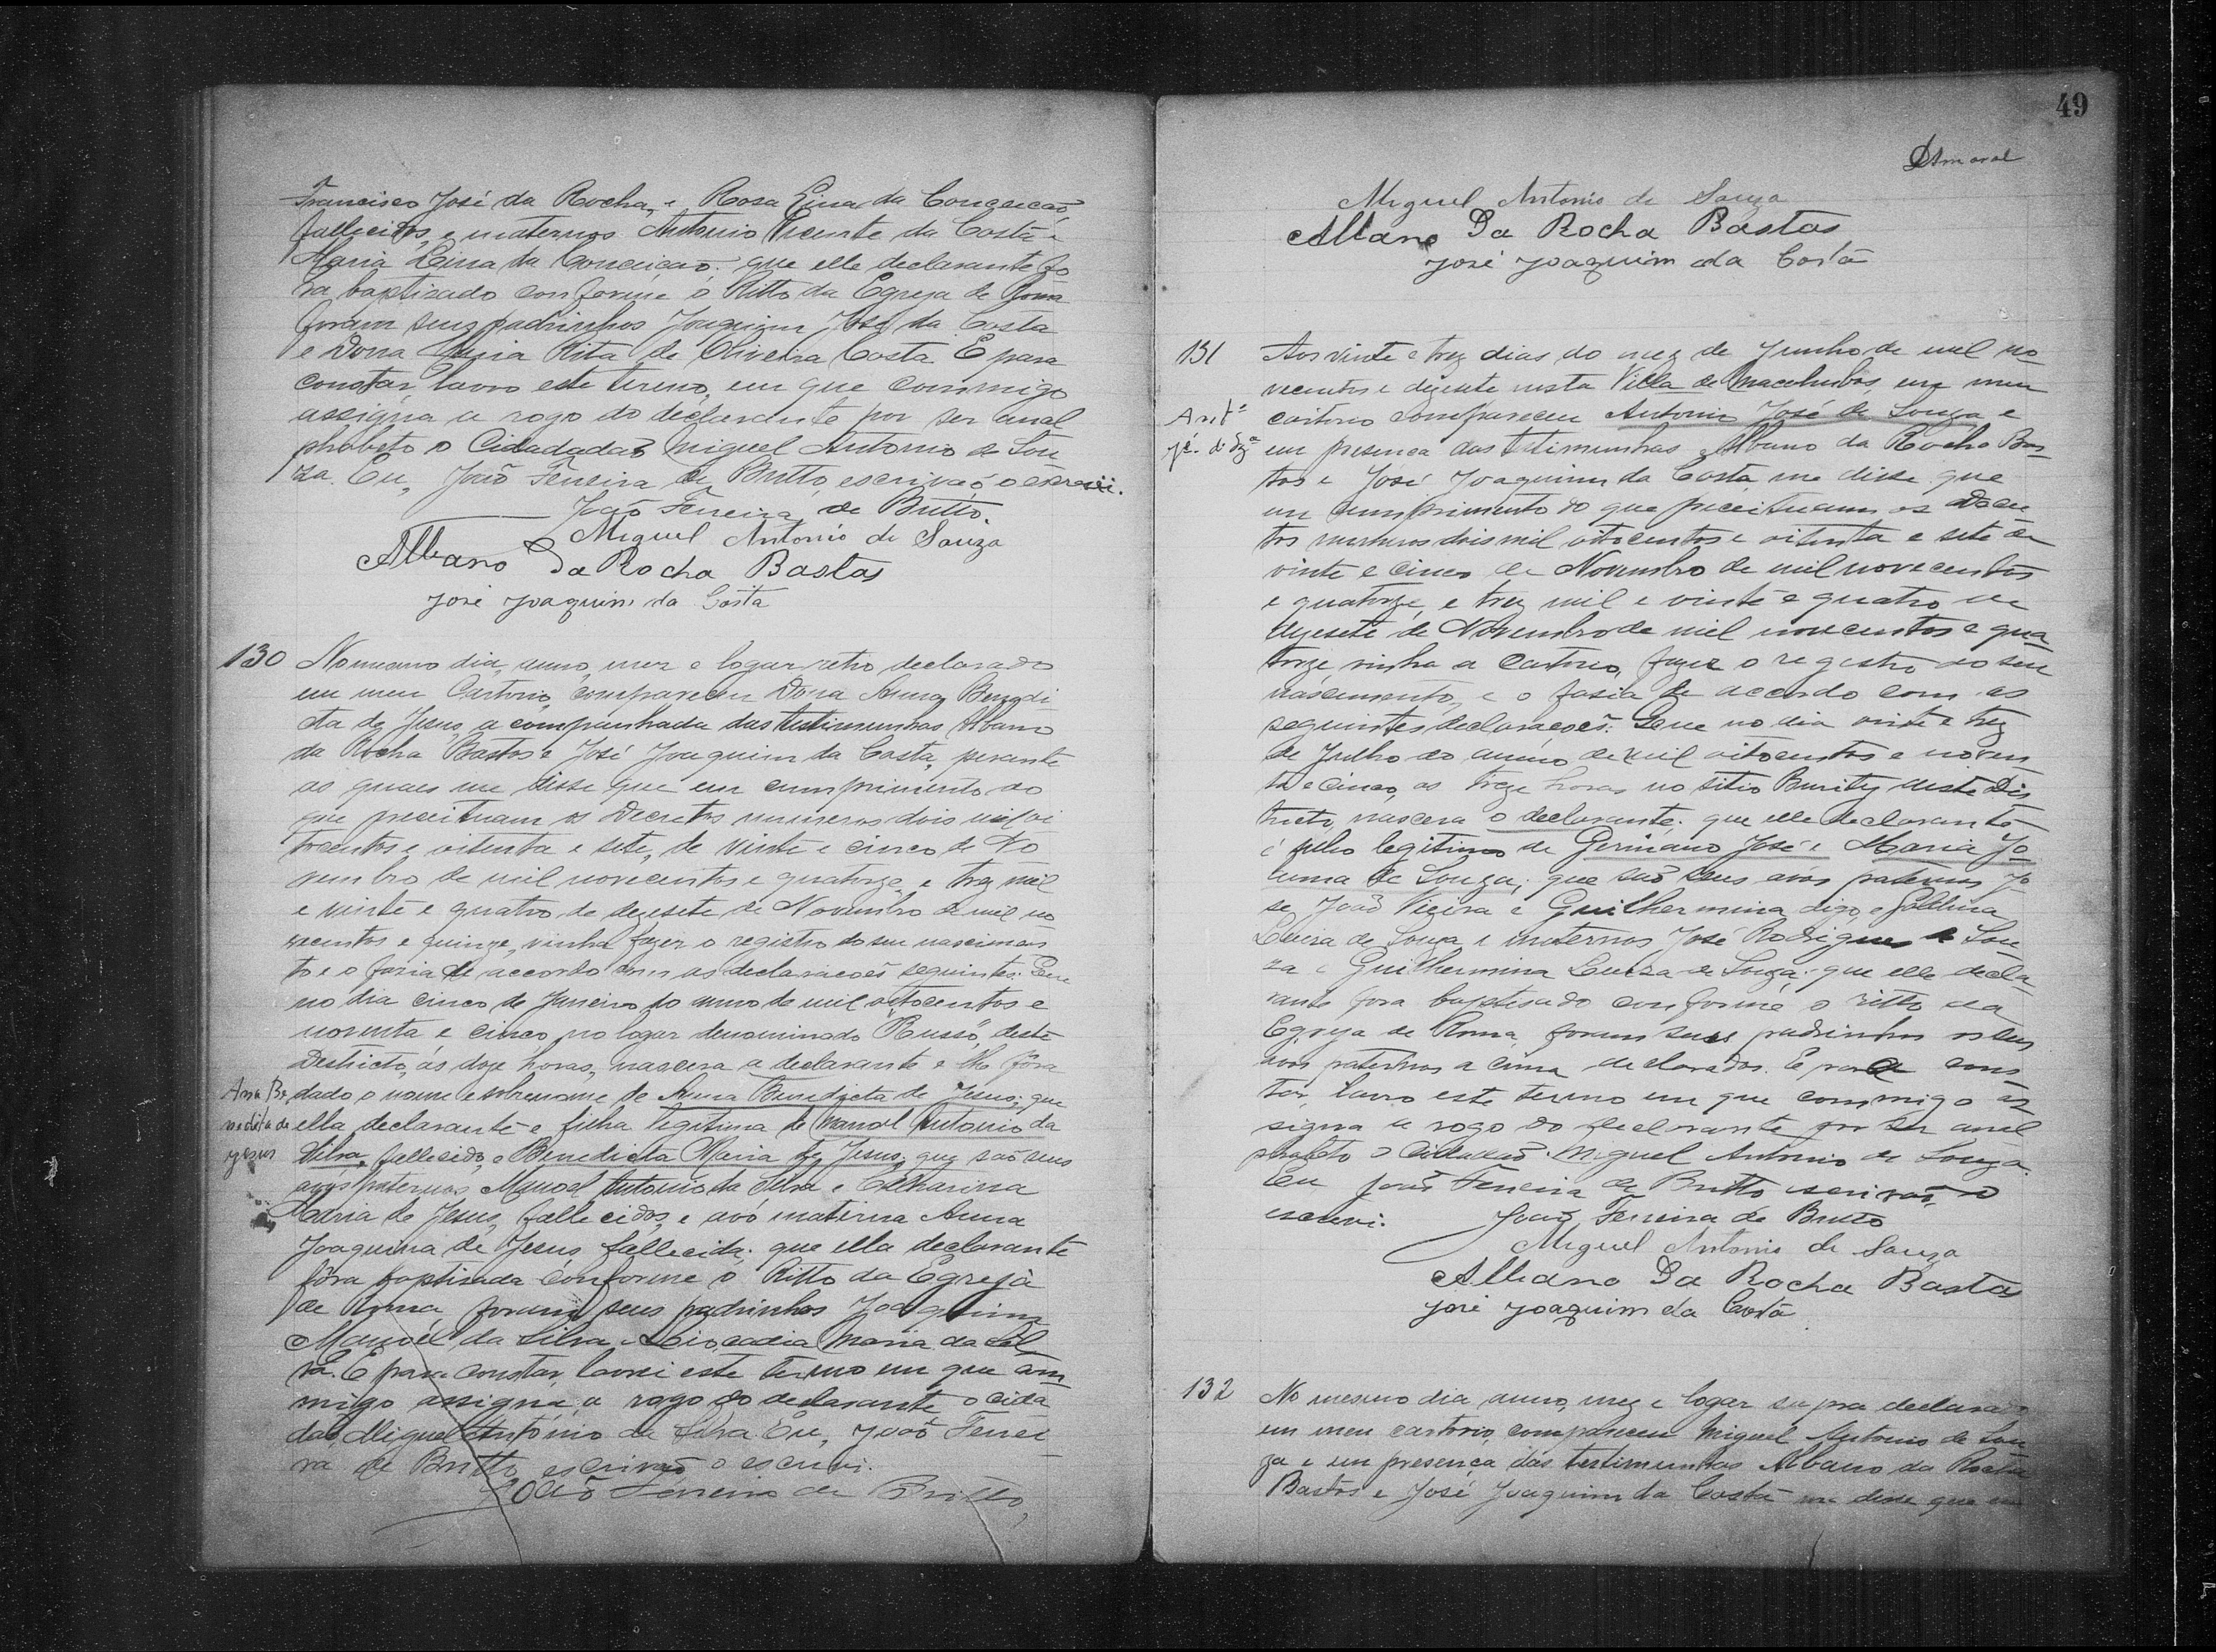 Francisco José da Rocha, e Rosa Lina da Conceicaõ,
fallecidos, e maternos Antonio Vicente da Costa e
Maria Lina da Conceiçaõ. que elle declarante fo
ra baptisado conforme o Ritto da Egreja de Roma
foram seus padrinhos Joaquim José da Costa
e Dona Maria Rita de Oliveira Costa. E para
constar, lavro este termo, em que commigo
assigna a rogo do declarante por ser anal
phabeto o Cidadadaõ Miguel Antonio de Sou
za. Eu, Joaõ Ferreira de Britto, escrivaõ o escrevi.
Joaõ Ferreira de Britto.
Miguel Antonio de Souza
Albano Da Rocha Bastos
José Joaquim da Costa
130 No mesmo dia, anno, mez e logar retro declarado
em meu Cartorio, compareceu Dona Anna Benedi
cta de Jesus, acompanhada das testimunhas Albano
da Rocha Bastos e José Joaquim da Costa, perante
as quaes me disse que em cumprimento do
que preceituam os Decretos numeros dois mil oi
trcentos e oitenta e sete, de vinte e cinco de No
vembro de mil novecentos e quatorze, e trez mil
e vinte e quatro de dezesete de Novembro de mil no
vecentos e quinze, vinha fazer o registro do seu nascimen
to e o fazia de accordo com as declaracoẽs seguintes: Que
no dia cinco de Janeiro do anno de mil oitocentos e
noventa e cinco, no logar denominado "Russo", deste
Destricto, ás doze horas, nascera a declarante e lhe fôra
Ana Be dado o nome e sobrenome de Anna Benedicta de Jesus; que
nedita de ella declarante é filha legitima de Manoel Antonio da
Jesus Silva, fallecido, e Benedicta Maria de Jesus; que saõ seus
avós paternos Manoel Antonio da Silva e Catharina
Maria de Jesus, fallecidos, e avó materna Anna
Joaquina de Jesus fallecida; que ella declarante
fôra baptisada conforme o Ritto da Egreja
de Roma, foram seus padrinhos Joaquim
Manoel da Silva e Leocadia Maria da Sil
va. E para constar, lavrei este termo em que com
migo assigna, a rogo do declarante o cida
daõ, Miguel Antonio da Silva. Eu, Joaõ Ferrei
ra de Britto, escrivaõ o escrevi.
Joaõ Ferreira de Britto,
49
Amaral
Miguel Antonio de Souza
Albano Da Rocha Bastos
José Joaquim da Costa
131 Aos vinte e trez dias do mez de Junho de mil no
vecentos e dezesete nesta Villa de Macahubas em meu
Antº cartorio compareceu Antonio José de Souza e
Jé. de Sza em presenca das testimunhas Albano da Rocha Bas
tos e José Joaquim da Costa, me disse que
em cumprimento do que preceituam os Decre
tos numeros dois mil oitocentos e oitenta e sete de
vinte e cinco de Novembro de mil novecentos
e quatorze, e trez mil e vinte e quatro de
dezesete de Novembro de mil novecentos e qua
torze, vinha a Cartorio, fazer o registro do seu
nascimento, e o fasia de accordo com as
seguintes declaracoẽs: Que no dia vinte e trez
de Julho do anno de mil oitocentos e noven
ta e cinco, as treze horas no sitio Burity deste Dis
tricto, nascera o declarante; que elle declarante
é filho legitimo de Germano José e Maria Jo
anna de Souza; que saõ seus avós paternos Jo
se Joaõ Vieira e Guilhermina digo, e
Luiza de Souza e maternos José Rodrigues de Sou
za e Guilhermina Luiza de Souza; que elle decla
rante fora baptisado conforme o ritto da
Egreja de Roma, foram seus padrinhos os seus
avos paternos acima declarados. E para cons
tar, lavro este termo em que commigo as
signa a rogo do declarante por ser anal
phabeto o Cidadaõ Miguel Antonio de Souza.
Eu Joaõ Ferreira de Britto escrivaõ, o
escrevi. Joaõ Ferreira de Britto
Miguel Antonio de Souza
Albano Da Rocha Basta
José Joaquim da Costa
132 No mesmo dia, anno, mez e logar supra declarado
em meu cartorio, compareceu Miguel Antonio de Sou
za e em presença das testimunhas Albano da Rocha
Bastos e José Joaquim da Costa me disse que em